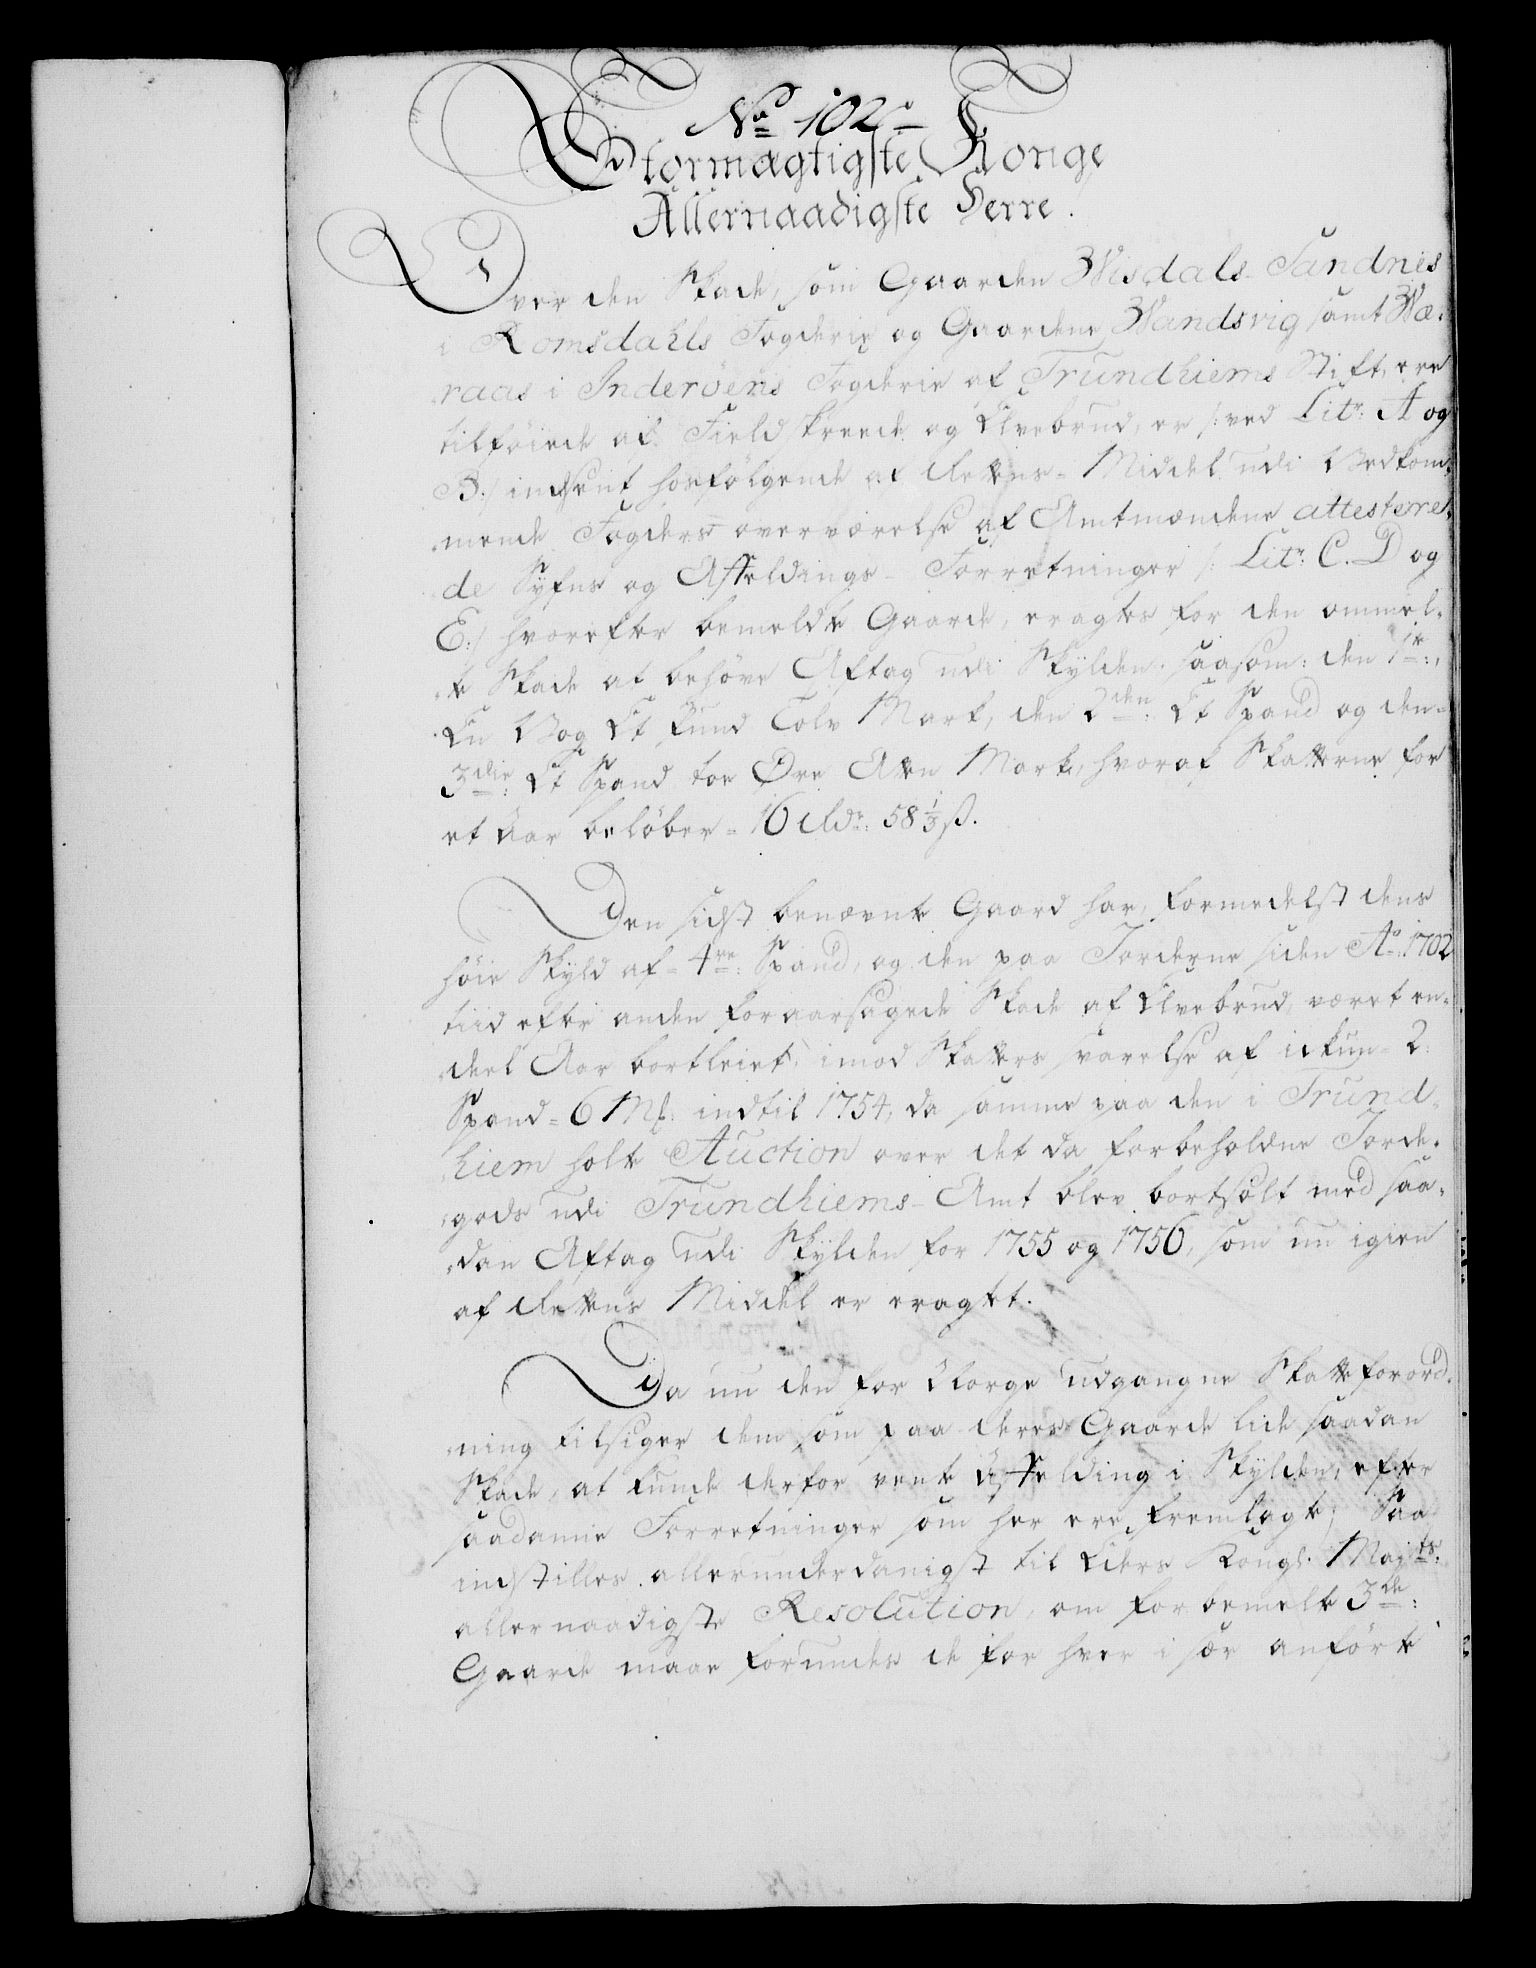 No. 102.
Stormægtigste Konge
Allernaadigste Herre.
Over den Skade, som Gaarden Wisdals-Sandnes
i Romsdahls Fogderie og Gaardene Wandsvig samt Wæ-
raas i Inderöens Fogderie af Trundhiems Stift, ere
tilföiede af Fieldskreede og Elvebrud, er /: ved Litr: A og
B:/ indsent hosfölgende af Rettens-Middel udi Vedkom-
mende Fogders overværelse af Amtmændene attesterre-
de Syfns og Affældings-Forretninger /: Litr: C. D og
E:/ hvorefter bemeldte Gaarde, eragtes for den ommel-
te Skade at behöve Aftag udi Skylden. saasom: den 1te:,
En Vog Et Pund Tolv Mark, den 2den: Et Spand og den
3die: Et Spand toe Øre Atten Mark, hvoraf Skatterne for
et Aar belöber = 16 Rdr: 58 1/3 ß.
Den sidst benævnte Gaard har, formedelst dens
höie Skyld af = 4re: Spand, og den paa Jorderne siden Ao. 1702
tiid efter anden foraarsagede Skade af Elvebrud, været en-
deel Aar bortleiet, imod Skatters svarelse af ickun = 2
Spand = 6 Mk: indtil 1754, da samme paa den i Trund-
hiem holte Auction over det da forbeholdne Jorde-
gods udi Trundhiems-Amt blev bortsolt med saa-
dan Aftag udi Skylden for 1755 og 1756, som nu igien
af Rettens Middel er eragtet.
Da nu den for Norge udgangne Skatteforord-
ning tilsiger dem som paa deres Gaarde lide saadan
Skade, at kunde derfor vente Affælding i Skylden, efter
saadanne Forretninger som her ere fremlagte; Saa
indstilles allerunderdanigst til Eders Kongl. Majts.
allernaadigste Resolution, om forbemelte 3de:
Gaarde maae forundes de for hver i sær anförte